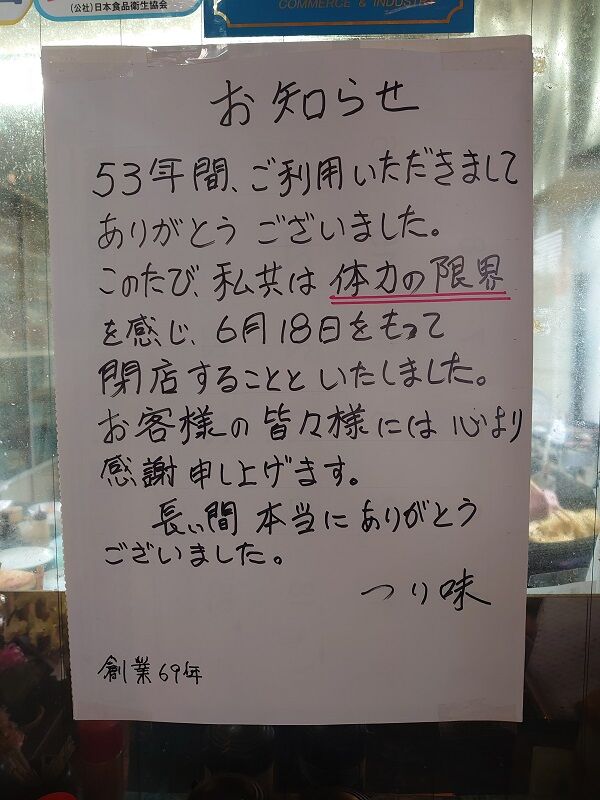 (公社)日本食品衛生協会
COMMERCE & INDUSTRY
お知らせ
53年間、ご利用いただきまして
ありがとうございました。
このたび、私共は体力の限界
を感じ、6月18日をもって
閉店することといたしました。
お客様の皆々様には心より
感謝申し上げます。
長い間本当にありがとう
ございました。
つり味
創業69年